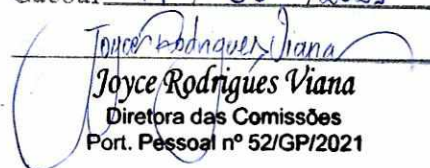 Joyce Rodrigues Viana
Joyce Rodrigues Viana
Diretora das Comissões
Port. Pessoal nº 52/GP/2021